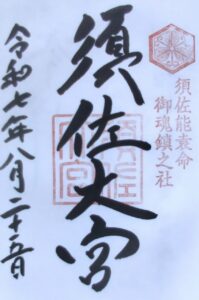 須佐能袁命
御魂鎮之社
須佐大宮
令和七年八月二十五日